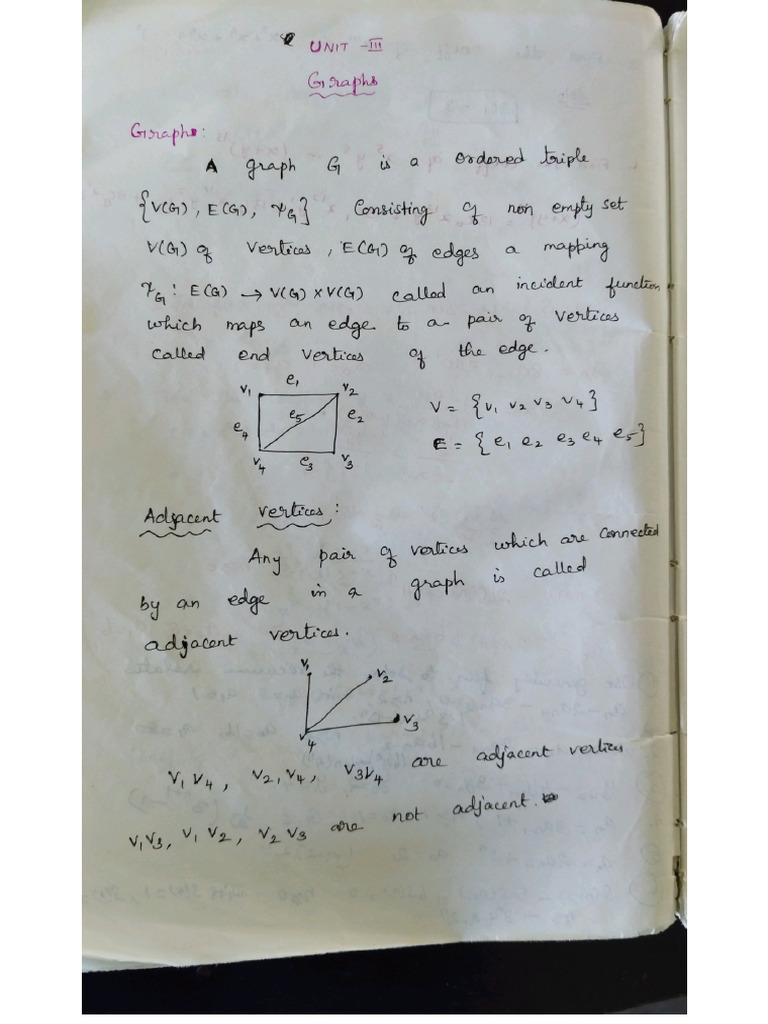 UNIT - III
Graphs
Graphs:
A graph G is a ordered triple
{V(G), E(G), ψG} Consisting of non empty set
V(G) of vertices, E(G) of edges a mapping
ψG: E(G) → V(G) x V(G) called an incident function
which maps an edge to a pair of vertices
called end vertices of the edge.
v1 e1 v2
e4 e5 e2
v4 e3 v3
V = {v1 v2 v3 v4}
E = {e1 e2 e3 e4 e5}
Adjacent vertices:
Any pair of vertices which are connected
by an edge in a graph is called
adjacent vertices.
v1 v2
v4 v3
v1 v4, v2, v4, v3 v4 are adjacent vertices
v1 v3, v1 v2, v2 v3 are not adjacent.